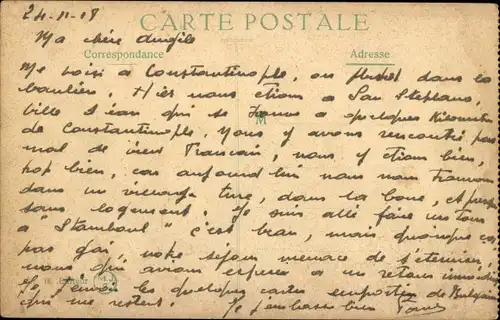 24-11-18
CARTE POSTALE
Ma chère
Correspondance
Adresse
Me voici à Constantinople, ou plutôt dans la
banlieu. Hier nous étions à San Stephano,
ville qui se trouve à quelques Kilomètres
de Constantinople. Nous y avons rencontré pas
mal de vieux Français, nous y étions bien,
trop bien, car aujourd'hui nous nous trouvons
dans un village turc, dans la boue, et presque
sans logement. Je suis allé faire un tour
à "Stamboul" c'est beau, mais quoique
pas gai, notre séjour menace de s'éterniser,
nous qui avions espéré à un retour immédiat
Je t'envoie les quelques cartes emportées de Bulgarie
qui me restent. Je t'embrasse bien